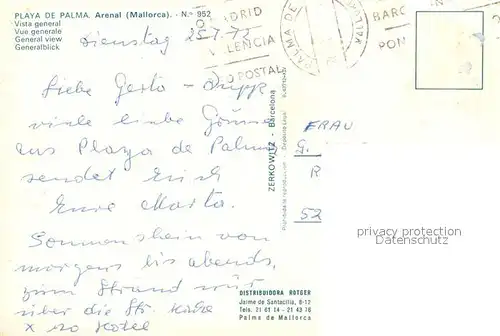 PLAYA DE PALMA. Arenal (Mallorca). - N.º 952
Vista general
Vue generale
General view
Generalblick
Dienstag 25.7.72
MADRID
VALENCIA
POSTAL
PALMA DE
BARC
PON
Liebe Gerto-
viele liebe
aus Playa de Palma
sendet Euch
Eure Marta.
Sonnenschein von
morgens bis abends,
zum Strand nur
über die Str.
x no Hotel
ZERKOWITZ - Barcelona
Prohibida la reproducción
FRAU
G.
R
52
privacy protection
DISTRIBUIDORA ROTGER
Jaime de Santacilia, 8-12
Tels. 21 61 14 - 21 43 18
Palma de Mallorca